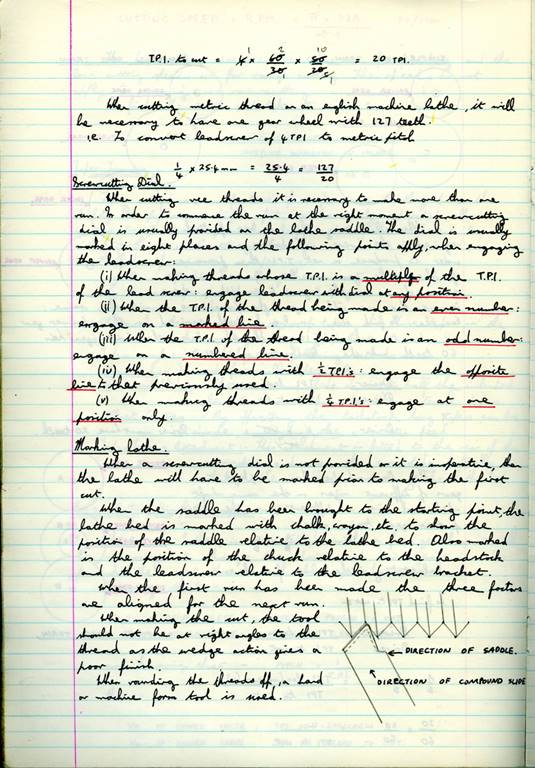 T.P.I. to cut = 4 × 60/30 × 50/20 = 20 TPI.
When cutting metric thread on an english machine lathe, it will
be necessary to have one gear wheel with 127 teeth.
i.e. To convert leadscrew of 4 TPI to metric pitch
1/4 × 25.4 mm = 25.4/4 = 127/20
Screwcutting Dial.
When cutting vee threads it is necessary to make more than one
run. In order to commence the run at the right moment a screwcutting
dial is usually provided on the lathe saddle. The dial is usually
marked in eight places and the following points apply, when engaging
the leadscrew:
(i) When making threads whose T.P.I. is a multiple of the T.P.I.
of the lead screw: engage leadscrew with dial at any position.
(ii) When the T.P.I. of the thread being made is an even number:
engage on a marked line.
(iii) When the T.P.I. of the thread being made is an odd number:
engage on a numbered line.
(iv) When making threads with 1/2 TPI's: engage the opposite
line to that previously used.
(v) When making threads with 1/4 TPI's: engage at one
position only.
Marking Lathe.
When a screwcutting dial is not provided or it is inoperative, then
the lathe will have to be marked prior to making the first
cut.
When the saddle has been brought to the starting point, the
lathe bed is marked with chalk, crayon, etc to show the
position of the saddle relative to the lathe bed. Also marked
is the position of the chuck relative to the headstock
and the leadscrew relative to the leadscrew bracket.
When the first run has been made the three factors
are aligned for the next run.
When making the cut, the tool
should not be at right angles to the
thread as the wedge action gives a
poor finish.
When rounding the threads off, a hand
or machine form tool is used.
DIRECTION OF SADDLE.
DIRECTION OF COMPOUND SLIDE